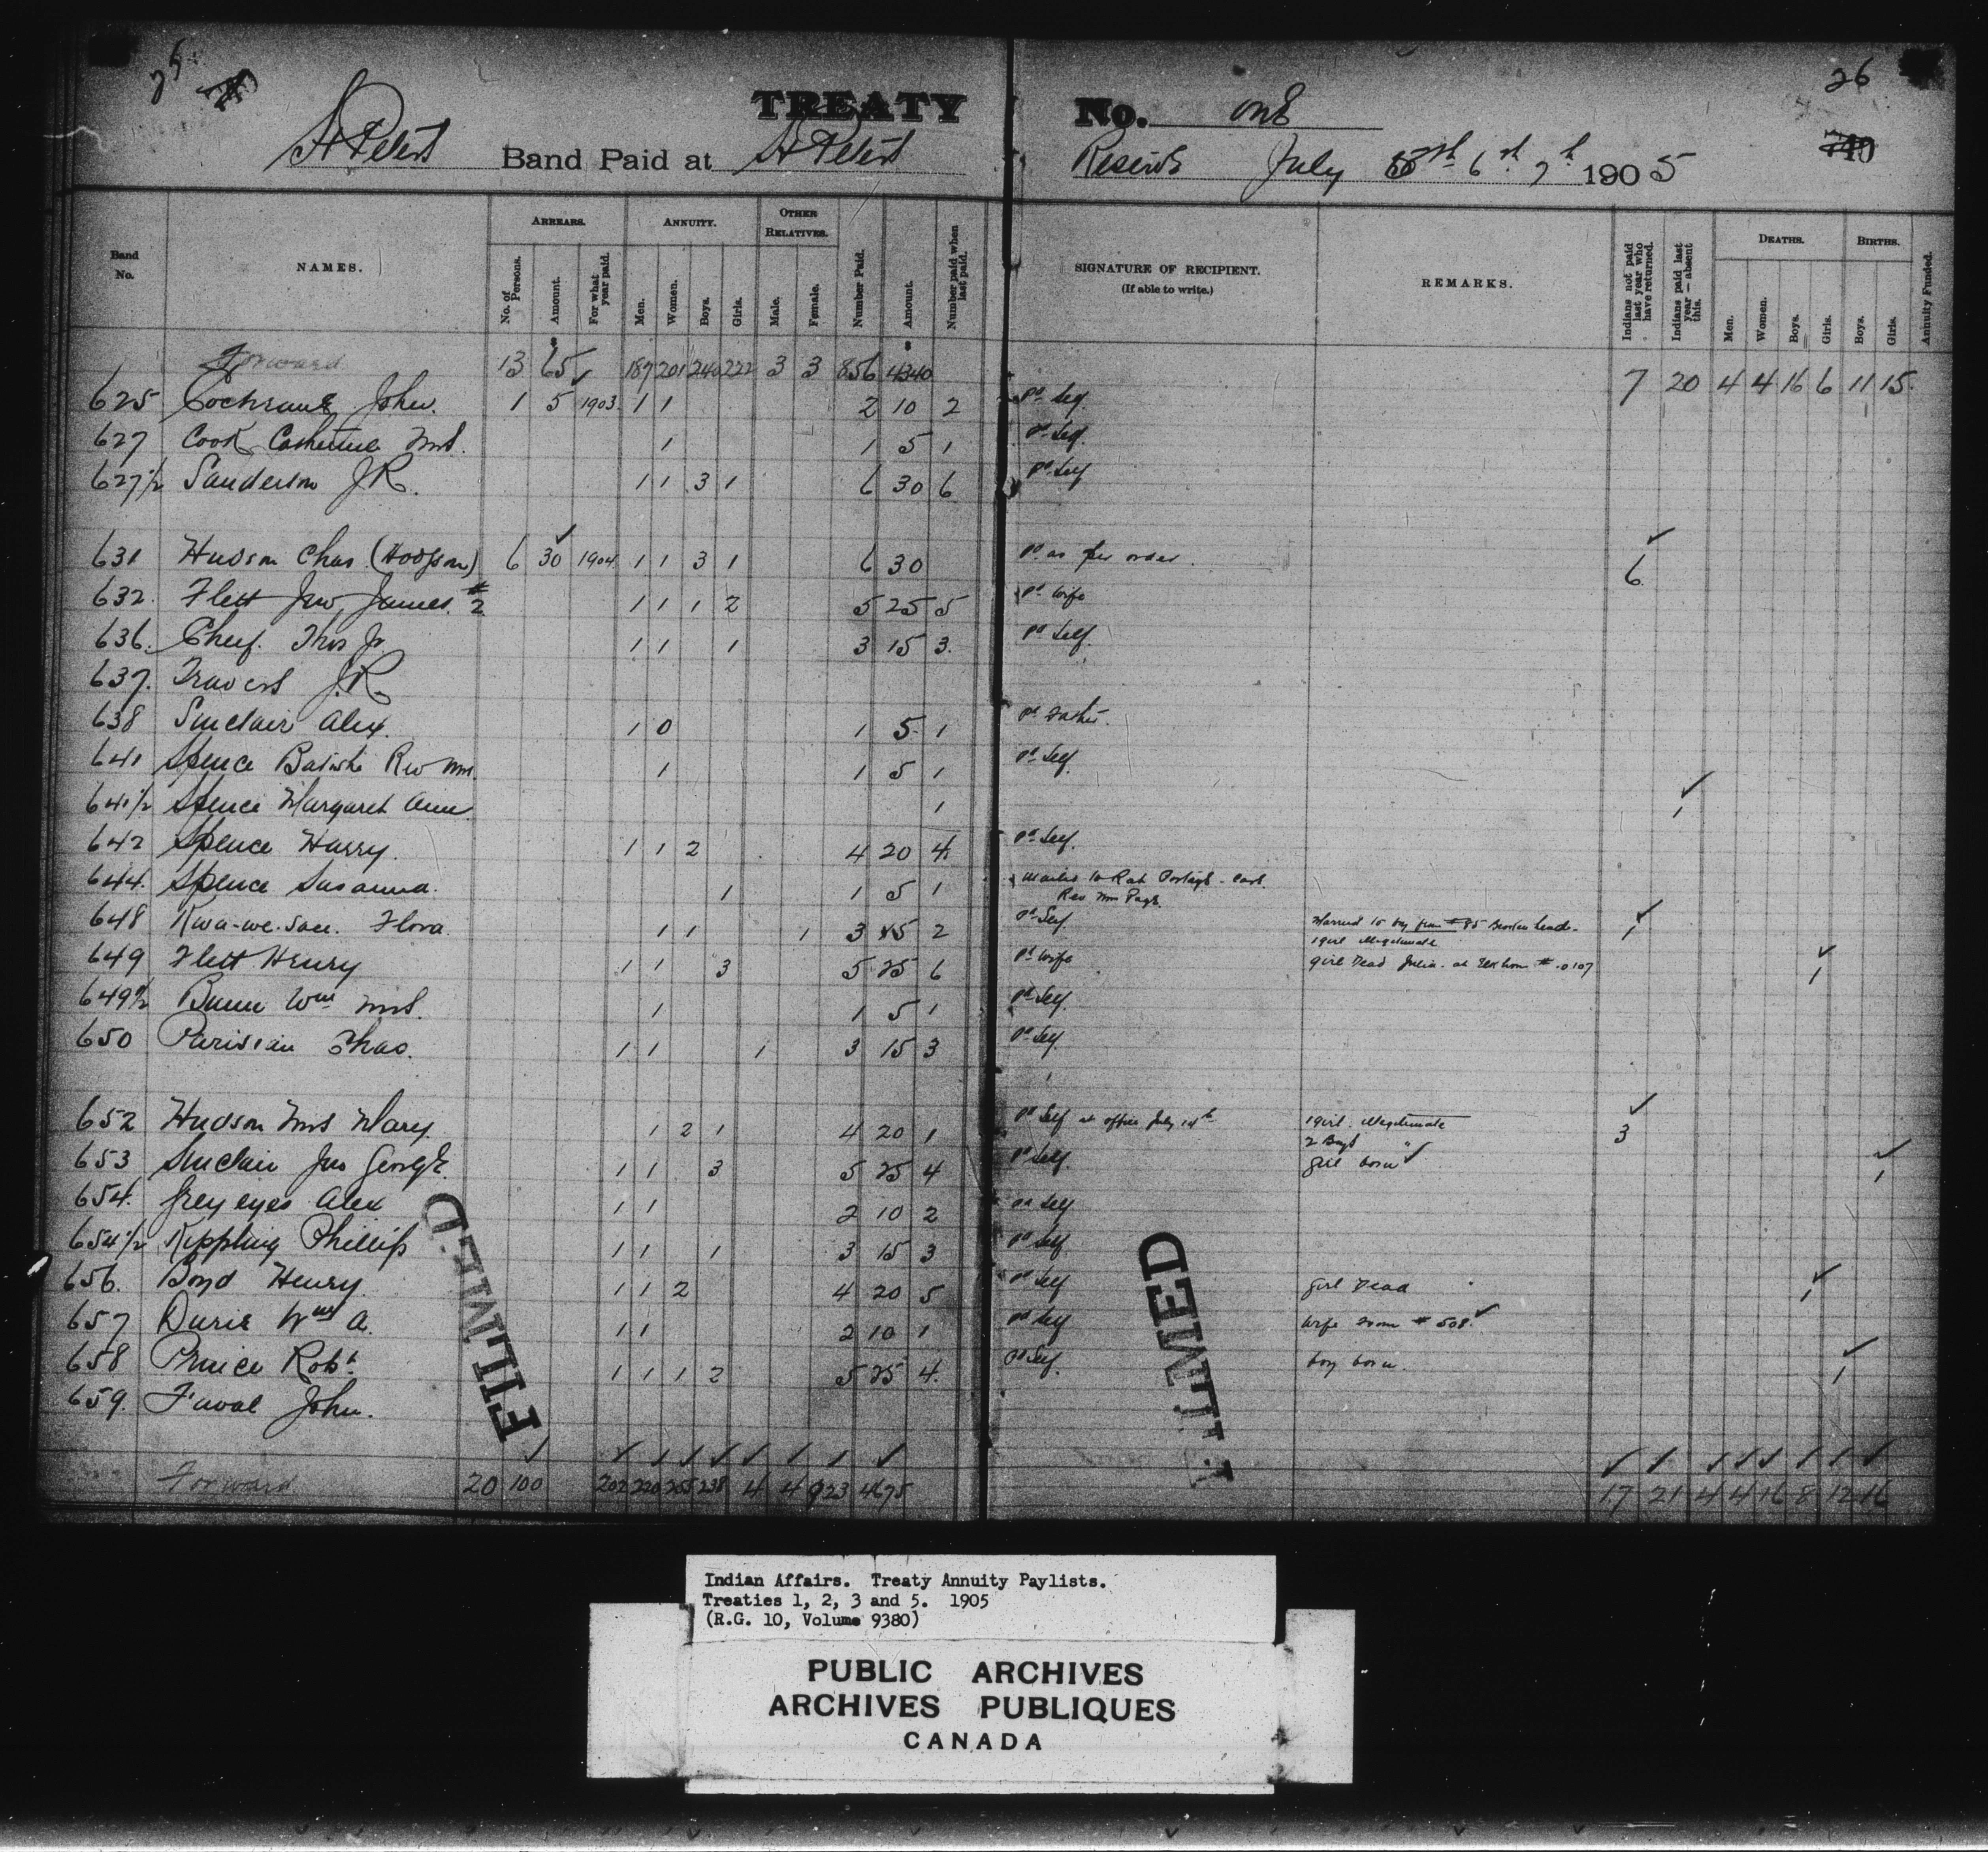 25
26
TREATY No. one
740
St Peters Band Paid at St Peters Reserve July 6th 7th 1905
Band No.
NAMES.
ARREARS.
No. of Persons.
Amount.
For what year paid.
ANNUITY.
Men.
Women.
Boys.
Girls.
OTHER RELATIVES.
Male.
Female.
Number Paid.
Amount.
Number paid when last paid.
SIGNATURE OF RECIPIENT.
(If able to write.)
REMARKS.
Indians not paid last year who have returned.
Indians paid last year — absent this.
DEATHS.
Men.
Women.
Boys.
Girls.
BIRTHS.
Boys.
Girls.
Annuity Funded.
Forward 13 65 187 201 240 222 3 3 856 4340 7 20 4 4 16 6 11 15
625 Cochrane John. 1 5 1903 1 1 2 10 2 pd Self.
627 Cook Catherine Mrs. 1 1 5 1 pd Self.
627½ Sanderson J.R. 1 1 3 1 6 30 6 pd Self
631 Hudson Chas (Hodgson) 6 30 1904 1 1 3 1 6 30 pd as per order. 6
632. Flett Jno James #2 1 1 1 2 5 25 5 pd Wife
636. Chief. Thos Jr 1 1 1 3 15 3. pd Self.
637. Travers J.R.
638 Sinclair Alex. 1 0 1 5 1 pd Father.
641 Spence Rev Mrs. 1 1 5 1 pd Self.
641½ Spence Margaret Ann 1 1
642 Spence Harry. 1 1 2 4 20 4 pd Self.
644. Spence Susanna. 1 1 5 1 Mailed to Rat Portage - care
Rev Mr Page.
648 Kwa-we-sace. Flora 1 1 1 3 15 2 pd Self. Married to boy from #85 Broken head. 1
1 girl illegitimate
649 Flett Henry 1 1 3 5 25 6 pd wife girl Dead Julia. at Elkhorn #.0107 1
649½ Bunn Wm Mrs. 1 1 5 1 pd Self.
650 Parisian Chas. 1 1 1 3 15 3 pd Self
652 Hudson Mrs Mary. 1 2 1 4 20 1 pd Self at office July 14th 1 girl. illegitimate 3
2 Boys "
653 Sinclair Jno George. 1 1 3 5 25 4 pd Self. girl born 1
654. Grey eyes Alex 1 1 2 10 2 pd Self
654½ Kippling Phillip 1 1 1 3 15 3 pd Self
656. Boyd Henry. 1 1 2 4 20 5 pd Self girl Dead 1
657 Wm A. 1 1 2 10 1 pd Self Wife from # 508.
658 Prince Robt. 1 1 1 2 5 25 4. pd Self. boy born. 1
659. Favel John.
Forward 20 100 202 220 255 238 4 4 923 4675 17 21 4 4 16 8 12 16
FILMED
FILMED
Indian Affairs. Treaty Annuity Paylists.
Treaties 1, 2, 3 and 5. 1905
(R.G. 10, Volume 9380)
PUBLIC ARCHIVES
ARCHIVES PUBLIQUES
CANADA